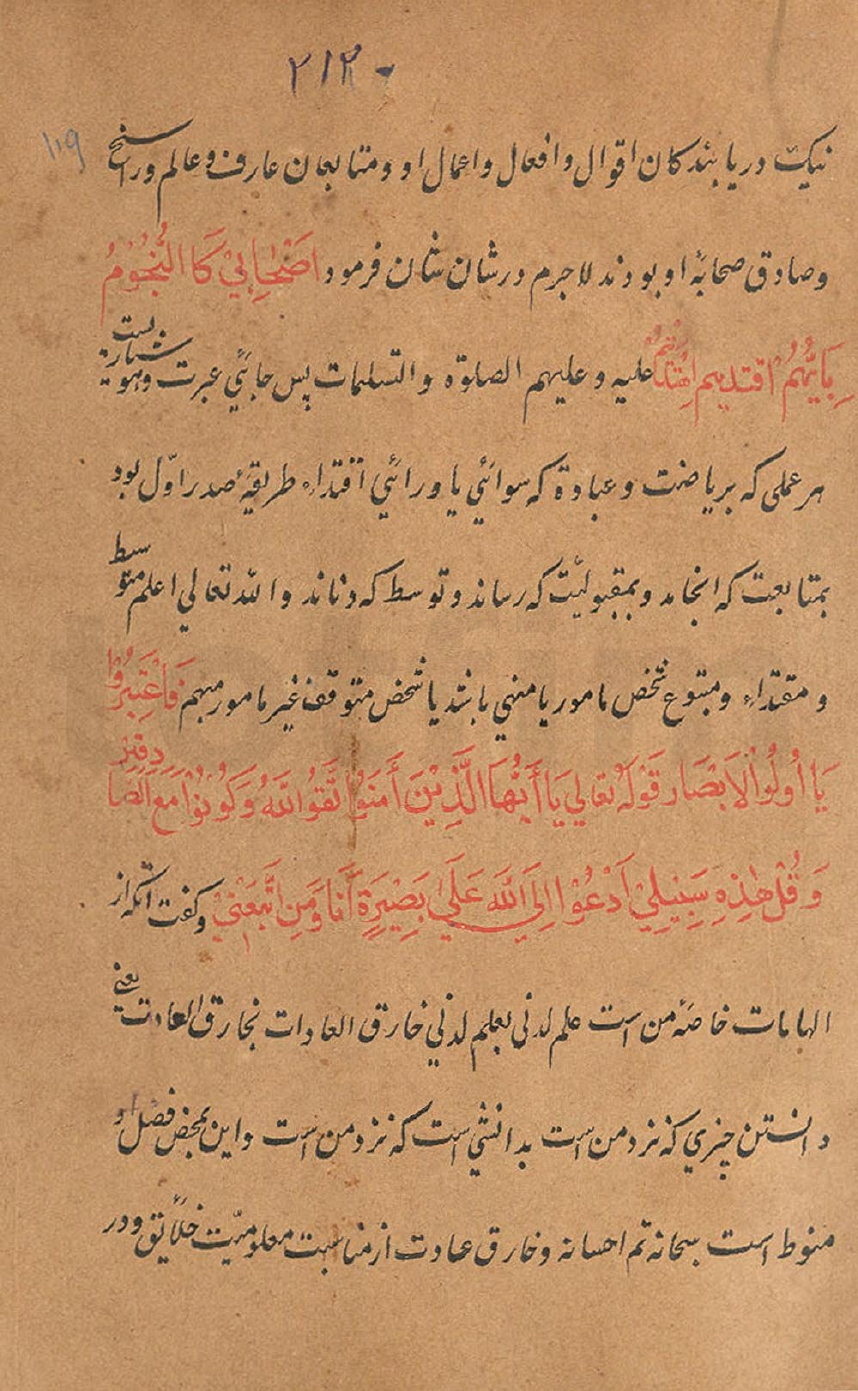 ۲۱۲
۱۱۹
نیک دریابندکان اقوال و افعال و اعمال او و متابعان عارف و عالم و راسخ
و صادق صحابهٔ او بودند لاجرم در شان شان فرمود اَصْحَابِيْ كَا النُّجُوْمُ
بِاَيِّهُمُ اقتديم اهْتَدَيْتُمْ علیه و علیهم الصلوة و التسلیمات پس جائي عبرت و هوشیاریست
هر عملی که بریاضت و عبادة که سوائي یا ورائي اقتداء طریقهٔ صدر اوّل بود
بمتابعت که انجامد و بمقبولیّت که رساند و توسط که داند و الله تعالي اعلم متوسط
و مقتداء و متبوع شخص مامور یا منهي باشد یا شخص متوقف غیر مامور مبهم فَاعْتَبِرُوْا
يَا اُولُوا الْاَبْصَار قَوْلَهُ تعالي يَا أَيُّهَا الَّذِيْنَ أٰمَنُوْا اتَّقُوا اللهَ وَكُوْنُوْا مَعَ الصَّادِقِيْنَ
وَقُلْ هٰذِهِ سَبِيْلِيْ اَدْعُوْا اِلَي اللهِ عَلَيٰ بَصِيْرَةٍ اَنَا وَمَنِ اتَّبَعَنِيْ و کفت آنکه از
الهامات خاصهٔ من است علم لدنی بعلم لدني خارق العادات بخارق العادت یعني
دانستن چیزي که نزد من است بدانشي است که نزد من است و این بمحض فضل او
منوط است سبحانه تم احسانه و خارق عادت از مناسبت معلومیّت خلایق و در